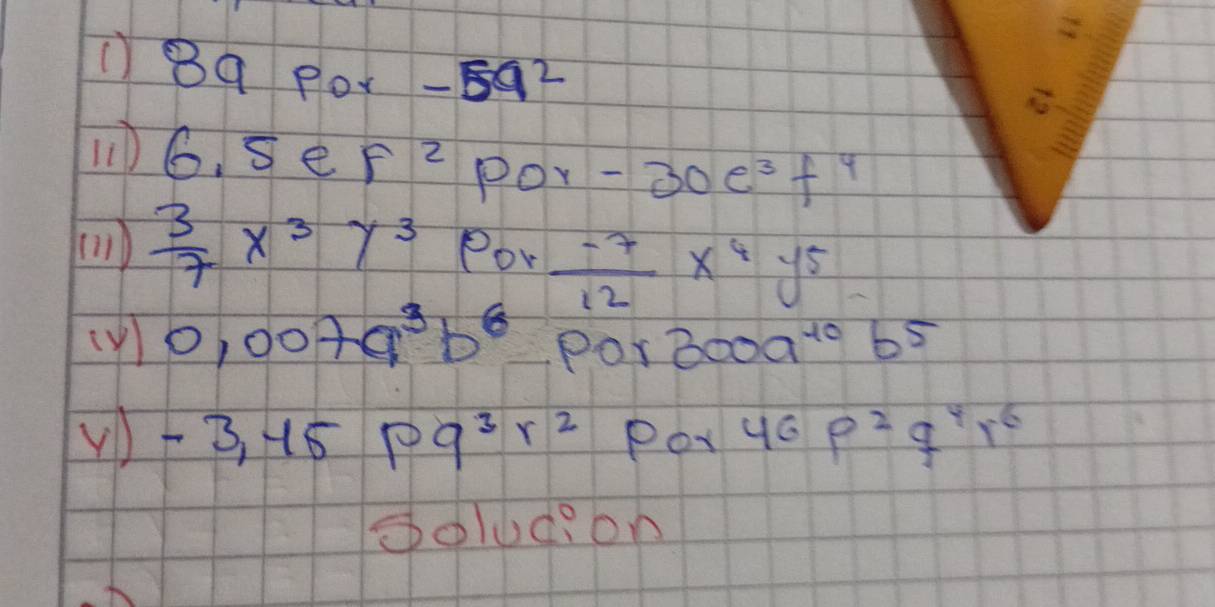 I) 8a por -5a²
II) 6,5 e f² por - 30e³f⁴
III) 3/7 x³ y³ por -7/12 x⁴ y⁵
IV) 0,007a³b⁶ por 300a⁻¹⁰ b⁵
V) - 3,45 pq³r² por 46 p²q⁴r⁶
Solucion
11
12